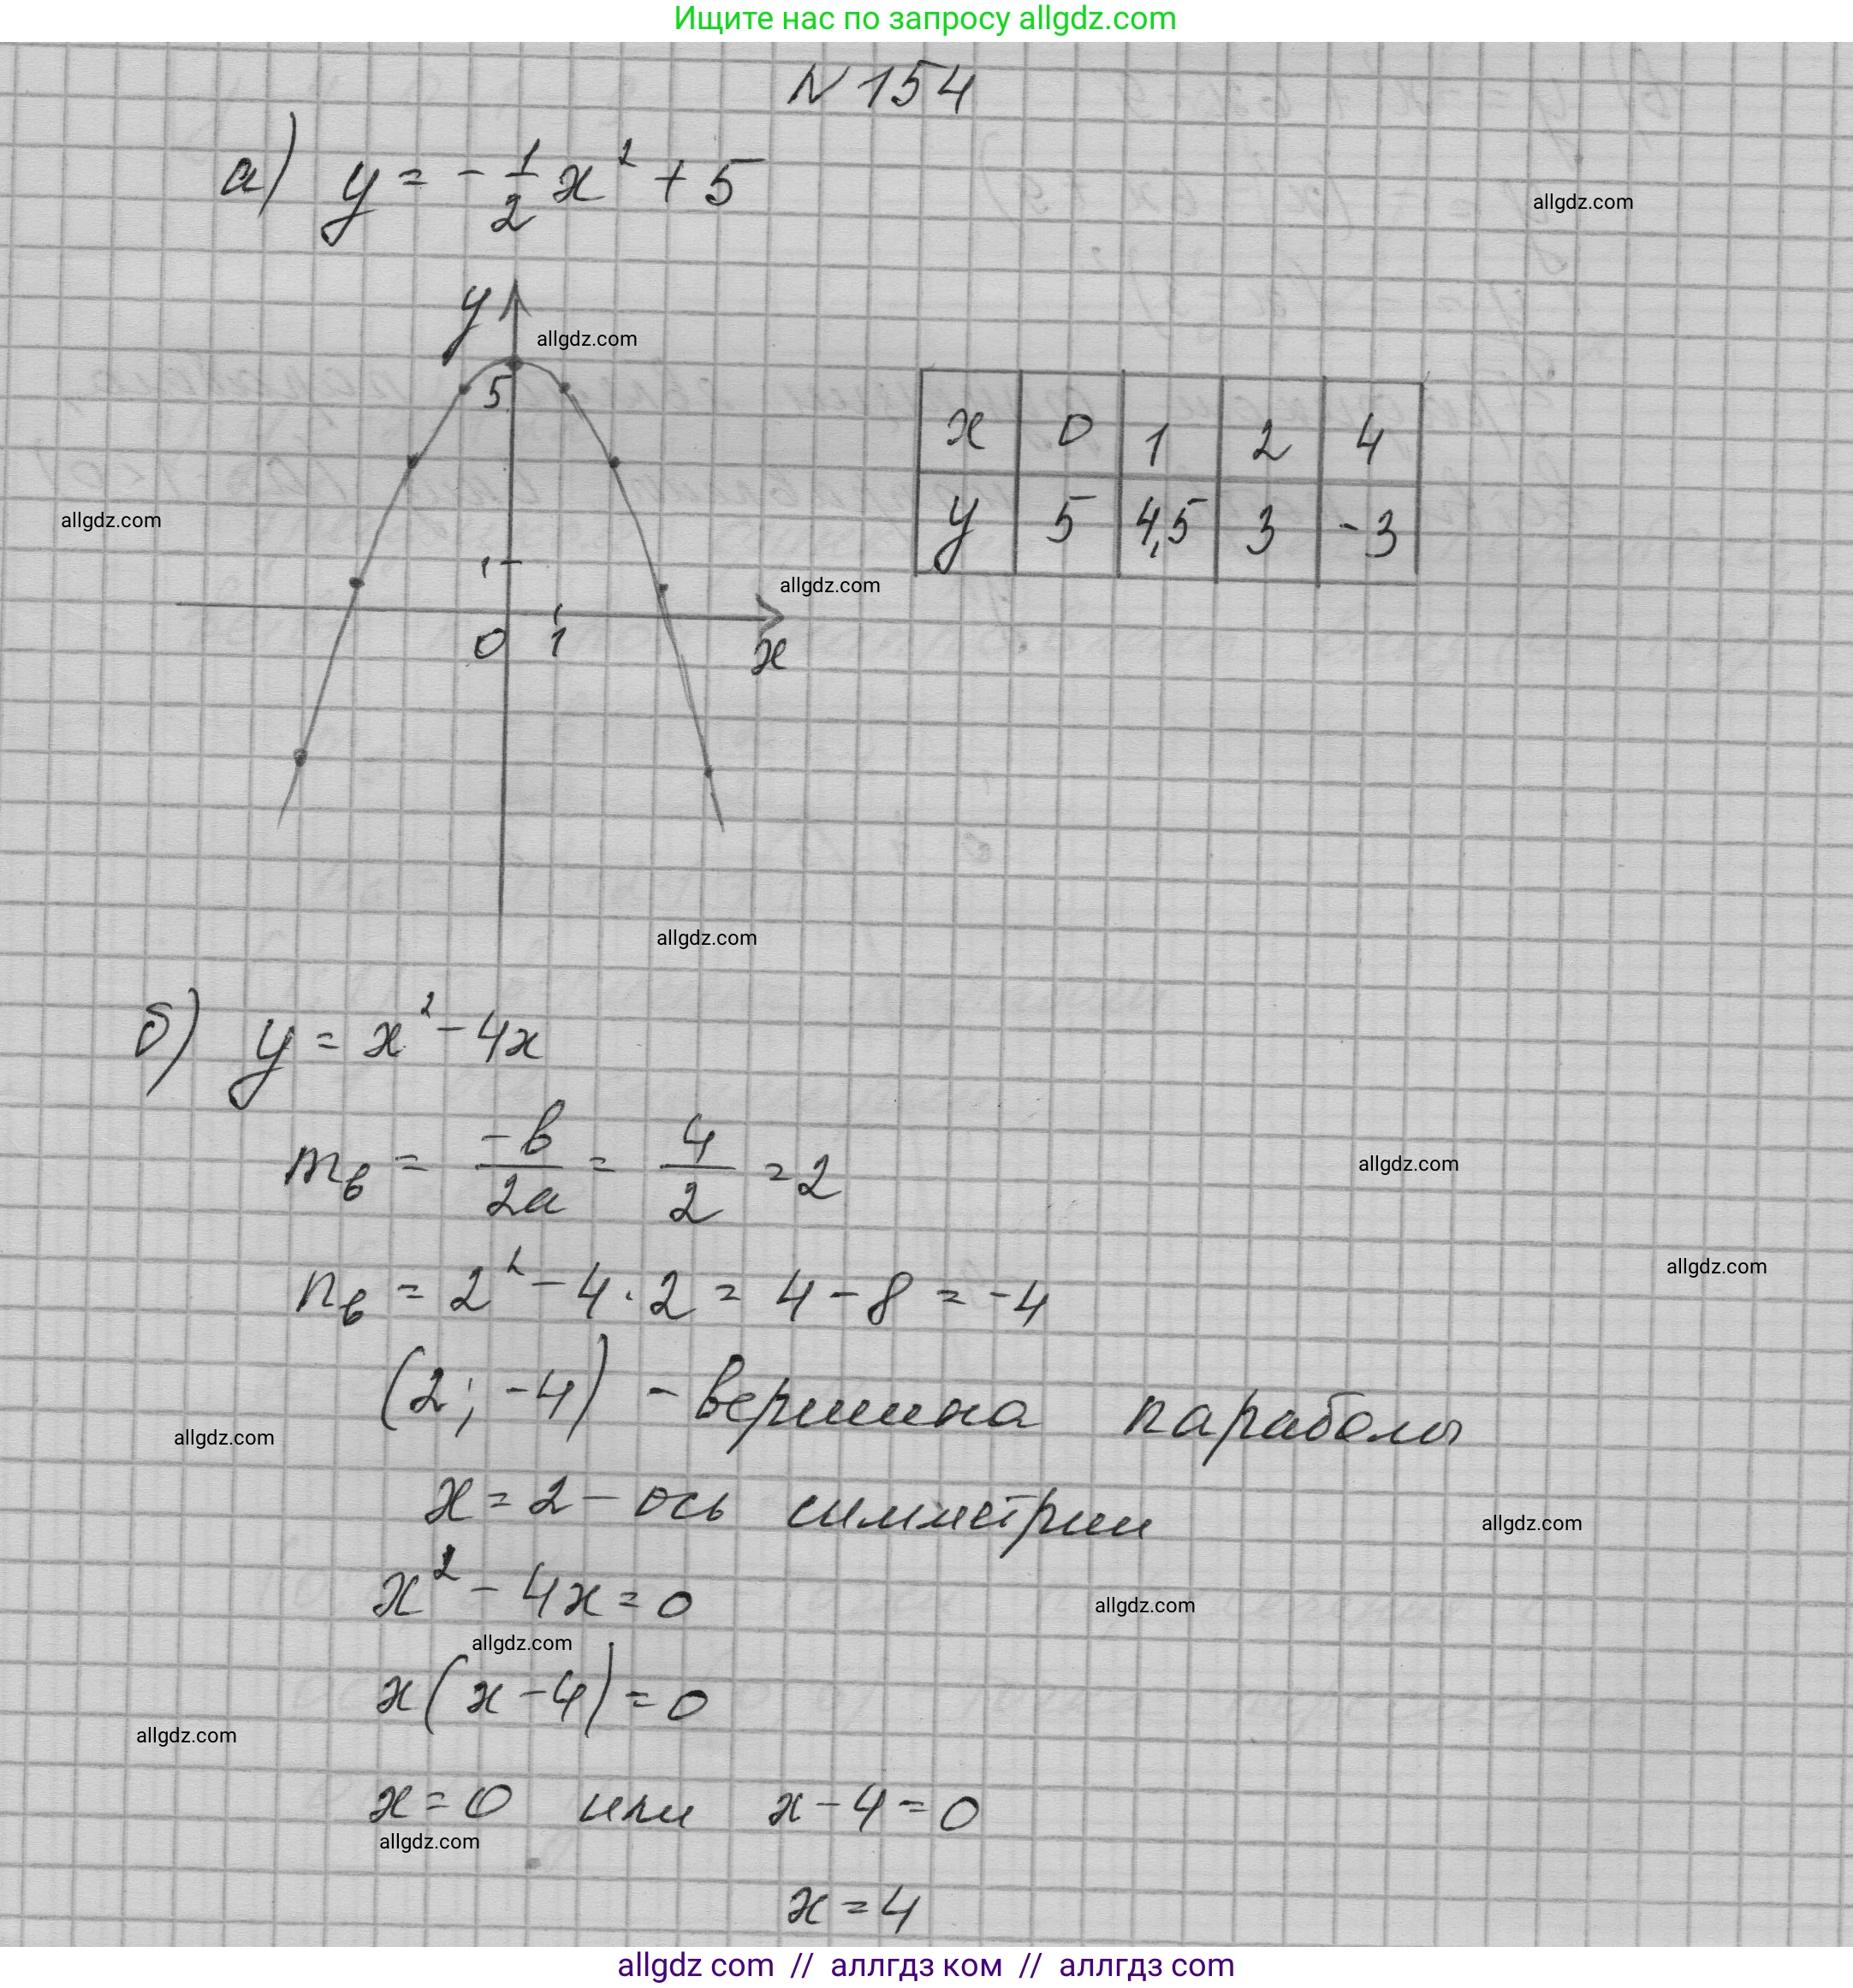 Ищите нас по запросу allgdz.com
N 154
а) y = -1/2 x² + 5
allgdz.com
y
allgdz.com
5
x 0 1 2 4
y 5 4,5 3 -3
allgdz.com
1
allgdz.com
0 1 x
allgdz.com
б) y = x² - 4x
m_в = -b/2a = 4/2 = 2
allgdz.com
n_в = 2² - 4 · 2 = 4 - 8 = -4
allgdz.com
(2; -4) - вершина параболы
allgdz.com
x = 2 - ось симметрии
allgdz.com
x² - 4x = 0
allgdz.com
allgdz.com
x(x - 4) = 0
allgdz.com
x = 0 или x - 4 = 0
allgdz.com
x = 4
allgdz com // аллгдз ком // аллгдз com